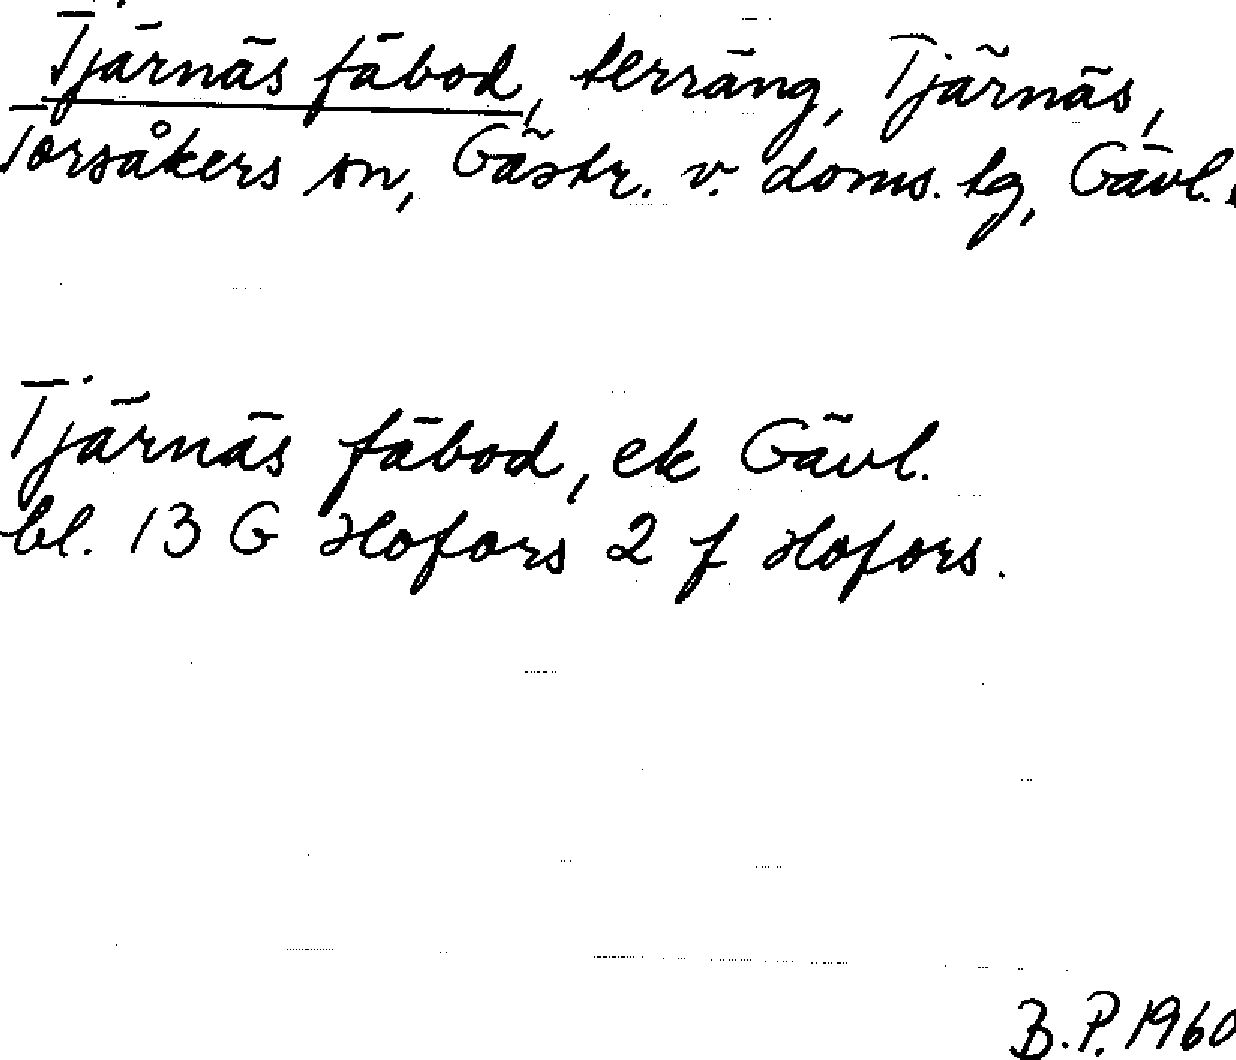 Tjärnäs fäbod, terräng, Tjärnäs,
Torsåkers sn, Gästr. v. doms. tg, Gävl.
Tjärnäs fäbod, ek Gävl.
bl. 13 G Hofors 2 f Hofors.
B.P. 1960